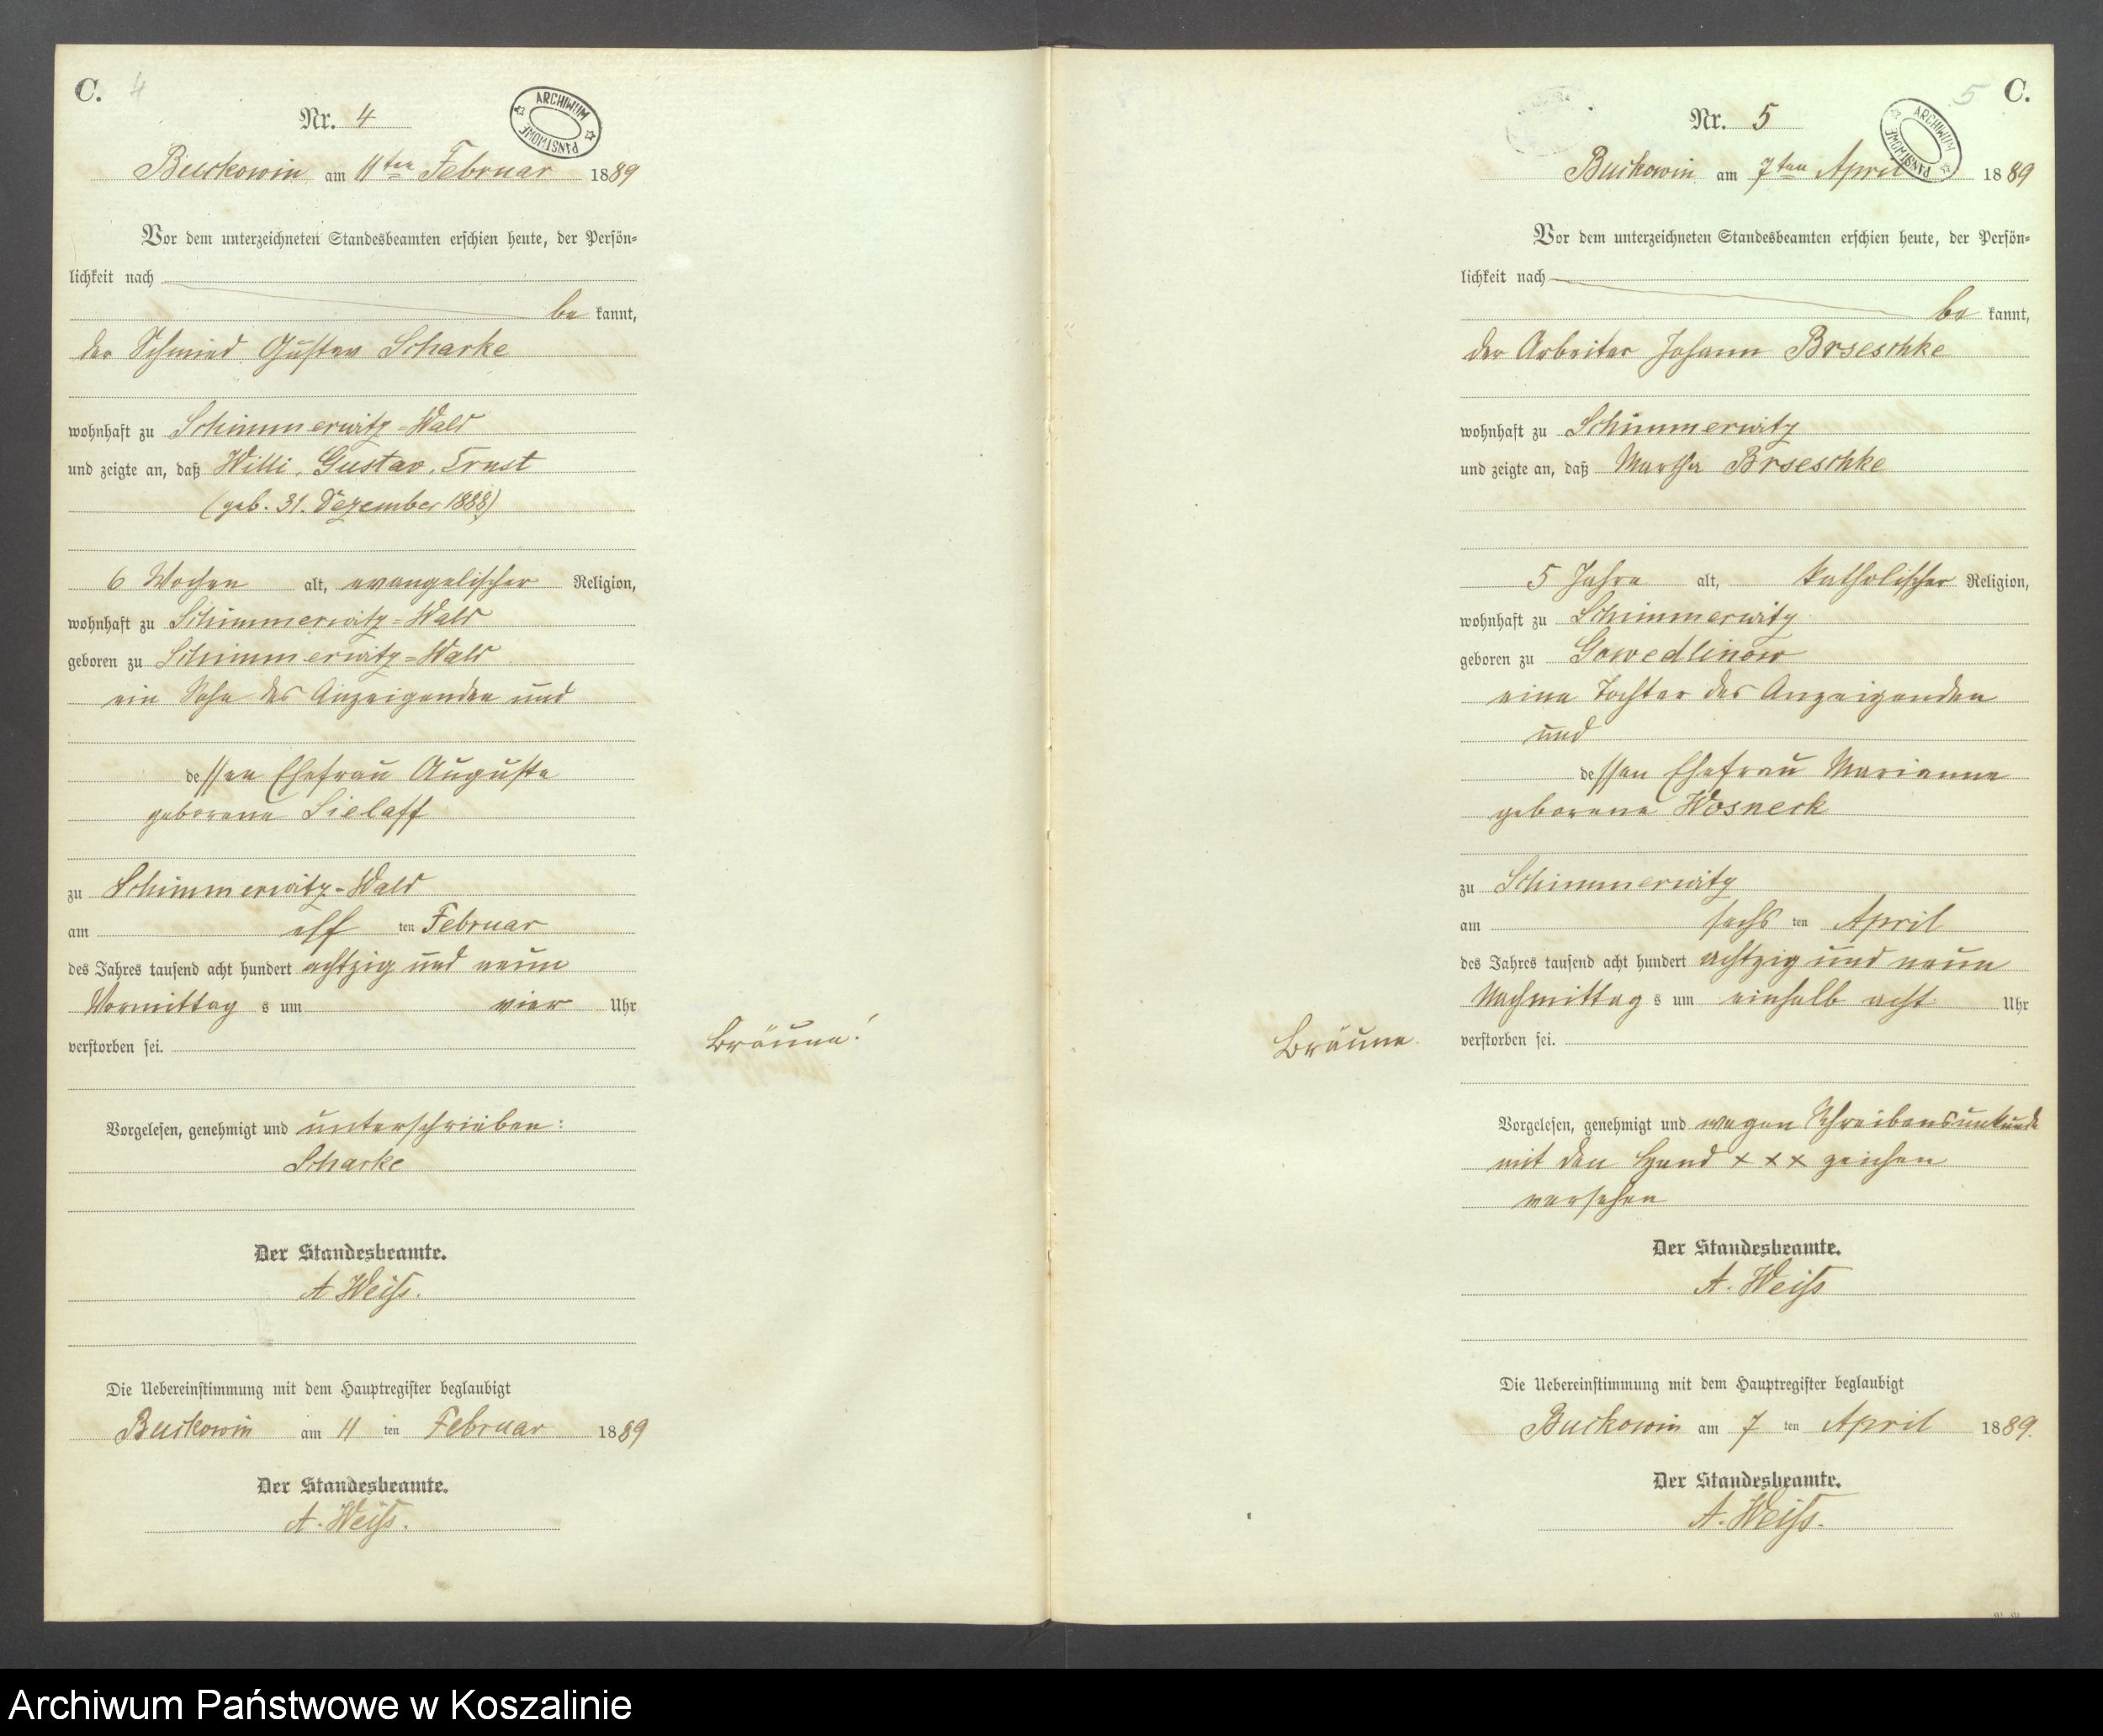 C. 4
ARCHIWUM PAŃSTWOWE
Nr. 4
Buckowin am 11ten Februar 1889
Vor dem unterzeichneten Standesbeamten erschien heute, der Persön-
lichkeit nach
be kannt,
der Schmied Gustav Scharke
wohnhaft zu Schimmerwitz-Wald
und zeigte an, daß Willi, Gustav, Ernst
(geb. 31. Dezember 1888)
6 Wochen alt, evangelischer Religion,
wohnhaft zu Schimmerwitz-Wald
geboren zu Schimmerwitz-Wald
ein Sohn des Anzeigenden und
dessen Ehefrau Auguste
geborene Sielaff
zu Schimmerwitz-Wald
am elf ten Februar
des Jahres tausend acht hundert achtzig und neun
Vormittag s um vier Uhr
verstorben sei.
Bräune!
Vorgelesen, genehmigt und unterschrieben:
Scharke
Der Standesbeamte.
A. Weiß.
Die Uebereinstimmung mit dem Hauptregister beglaubigt
Buckowin am 11 ten Februar 1889
Der Standesbeamte.
A. Weiß.
5 C.
ARCHIWUM PAŃSTWOWE
Nr. 5
Buckowin am 7ten April 1889
Vor dem unterzeichneten Standesbeamten erschien heute, der Persön-
lichkeit nach
be kannt,
der Arbeiter Johann Brseschke
wohnhaft zu Schimmerwitz
und zeigte an, daß Martha Brseschke
5 Jahre alt, katholischer Religion,
wohnhaft zu Schimmerwitz
geboren zu Gowedlinow
eine Tochter des Anzeigenden
und
dessen Ehefrau Marianne
geborene Wosneck
zu Schimmerwitz
am sechs ten April
des Jahres tausend acht hundert achtzig und neun
Nachmittag s um einhalb acht Uhr
verstorben sei.
Bräune.
Vorgelesen, genehmigt und wegen Schreibensunkunde
mit den Hand x x x zeichen
versehen
Der Standesbeamte.
A. Weiß
Die Uebereinstimmung mit dem Hauptregister beglaubigt
Buckowin am 7 ten April 1889.
Der Standesbeamte.
A. Weiß.
Archiwum Państwowe w Koszalinie